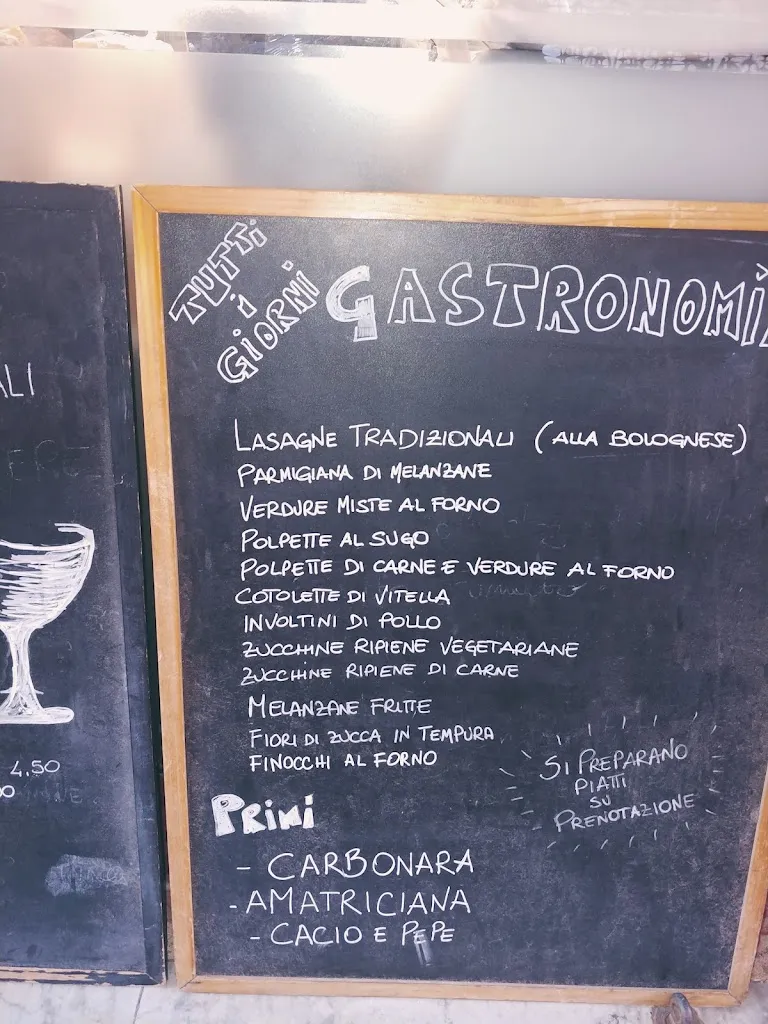 TUTTI
i
GIORNI
GASTRONOMÌ
LASAGNE TRADIZIONALI (ALLA BOLOGNESE)
PARMIGIANA DI MELANZANE
VERDURE MISTE AL FORNO
POLPETTE AL SUGO
POLPETTE DI CARNE E VERDURE AL FORNO
COTOLETTE DI VITELLA
INVOLTINI DI POLLO
ZUCCHINE RIPIENE VEGETARIANE
ZUCCHINE RIPIENE DI CARNE
MELANZANE FRITTE
FIORI DI ZUCCA IN TEMPURA
FINOCCHI AL FORNO
SI PREPARANO
PIATTI
SU
PRENOTAZIONE
PRIMI
- CARBONARA
- AMATRICIANA
- CACIO E PEPE
ALI
4,50